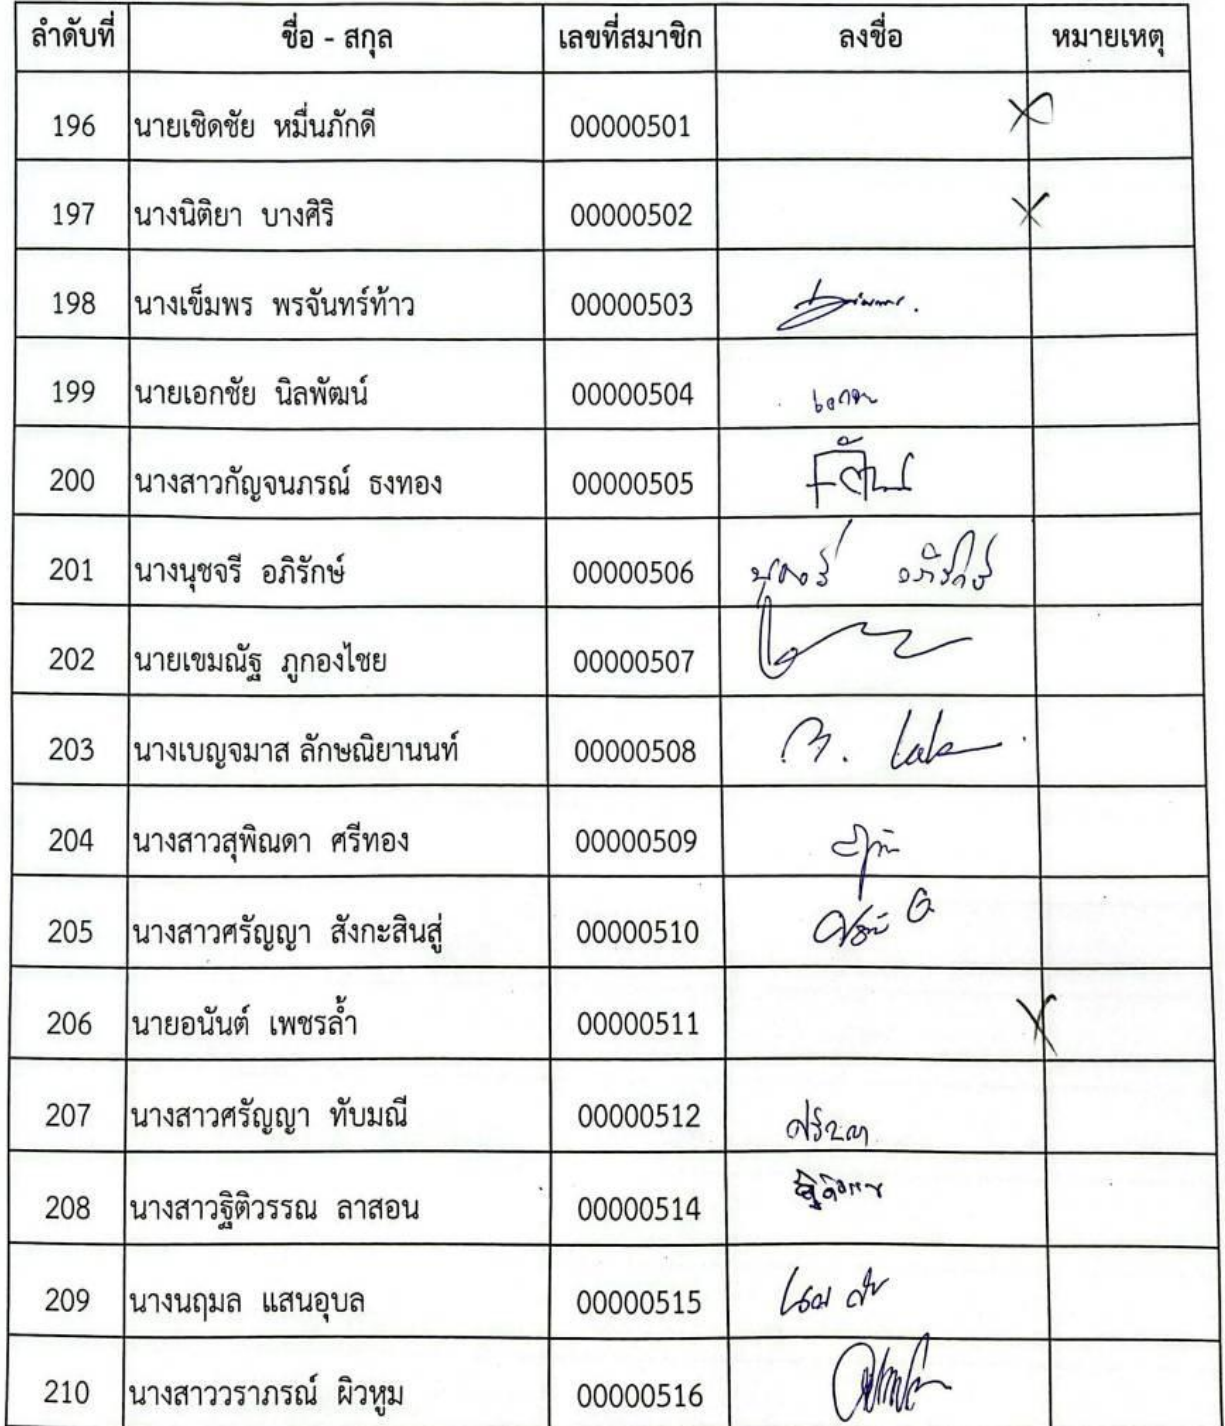 ลำดับที่ ชื่อ - สกุล เลขที่สมาชิก ลงชื่อ หมายเหตุ
196 นายเชิดชัย หมื่นภักดี 00000501
197 นางนิติยา บางศิริ 00000502
198 นางเข็มพร พรจันทร์ท้าว 00000503
199 นายเอกชัย นิลพัฒน์ 00000504
200 นางสาวกัญจนภรณ์ ธงทอง 00000505
201 นางนุชจรี อภิรักษ์ 00000506 นุชจรี อภิรักษ์
202 นายเขมณัฐ ภูกองไชย 00000507
203 นางเบญจมาส ลักษณิยานนท์ 00000508
204 นางสาวสุพิณดา ศรีทอง 00000509
205 นางสาวศรัญญา สังกะสินสู่ 00000510
206 นายอนันต์ เพชรล้ำ 00000511
207 นางสาวศรัญญา ทับมณี 00000512
208 นางสาวฐิติวรรณ ลาสอน 00000514
209 นางนฤมล แสนอุบล 00000515
210 นางสาววราภรณ์ ผิวหูม 00000516